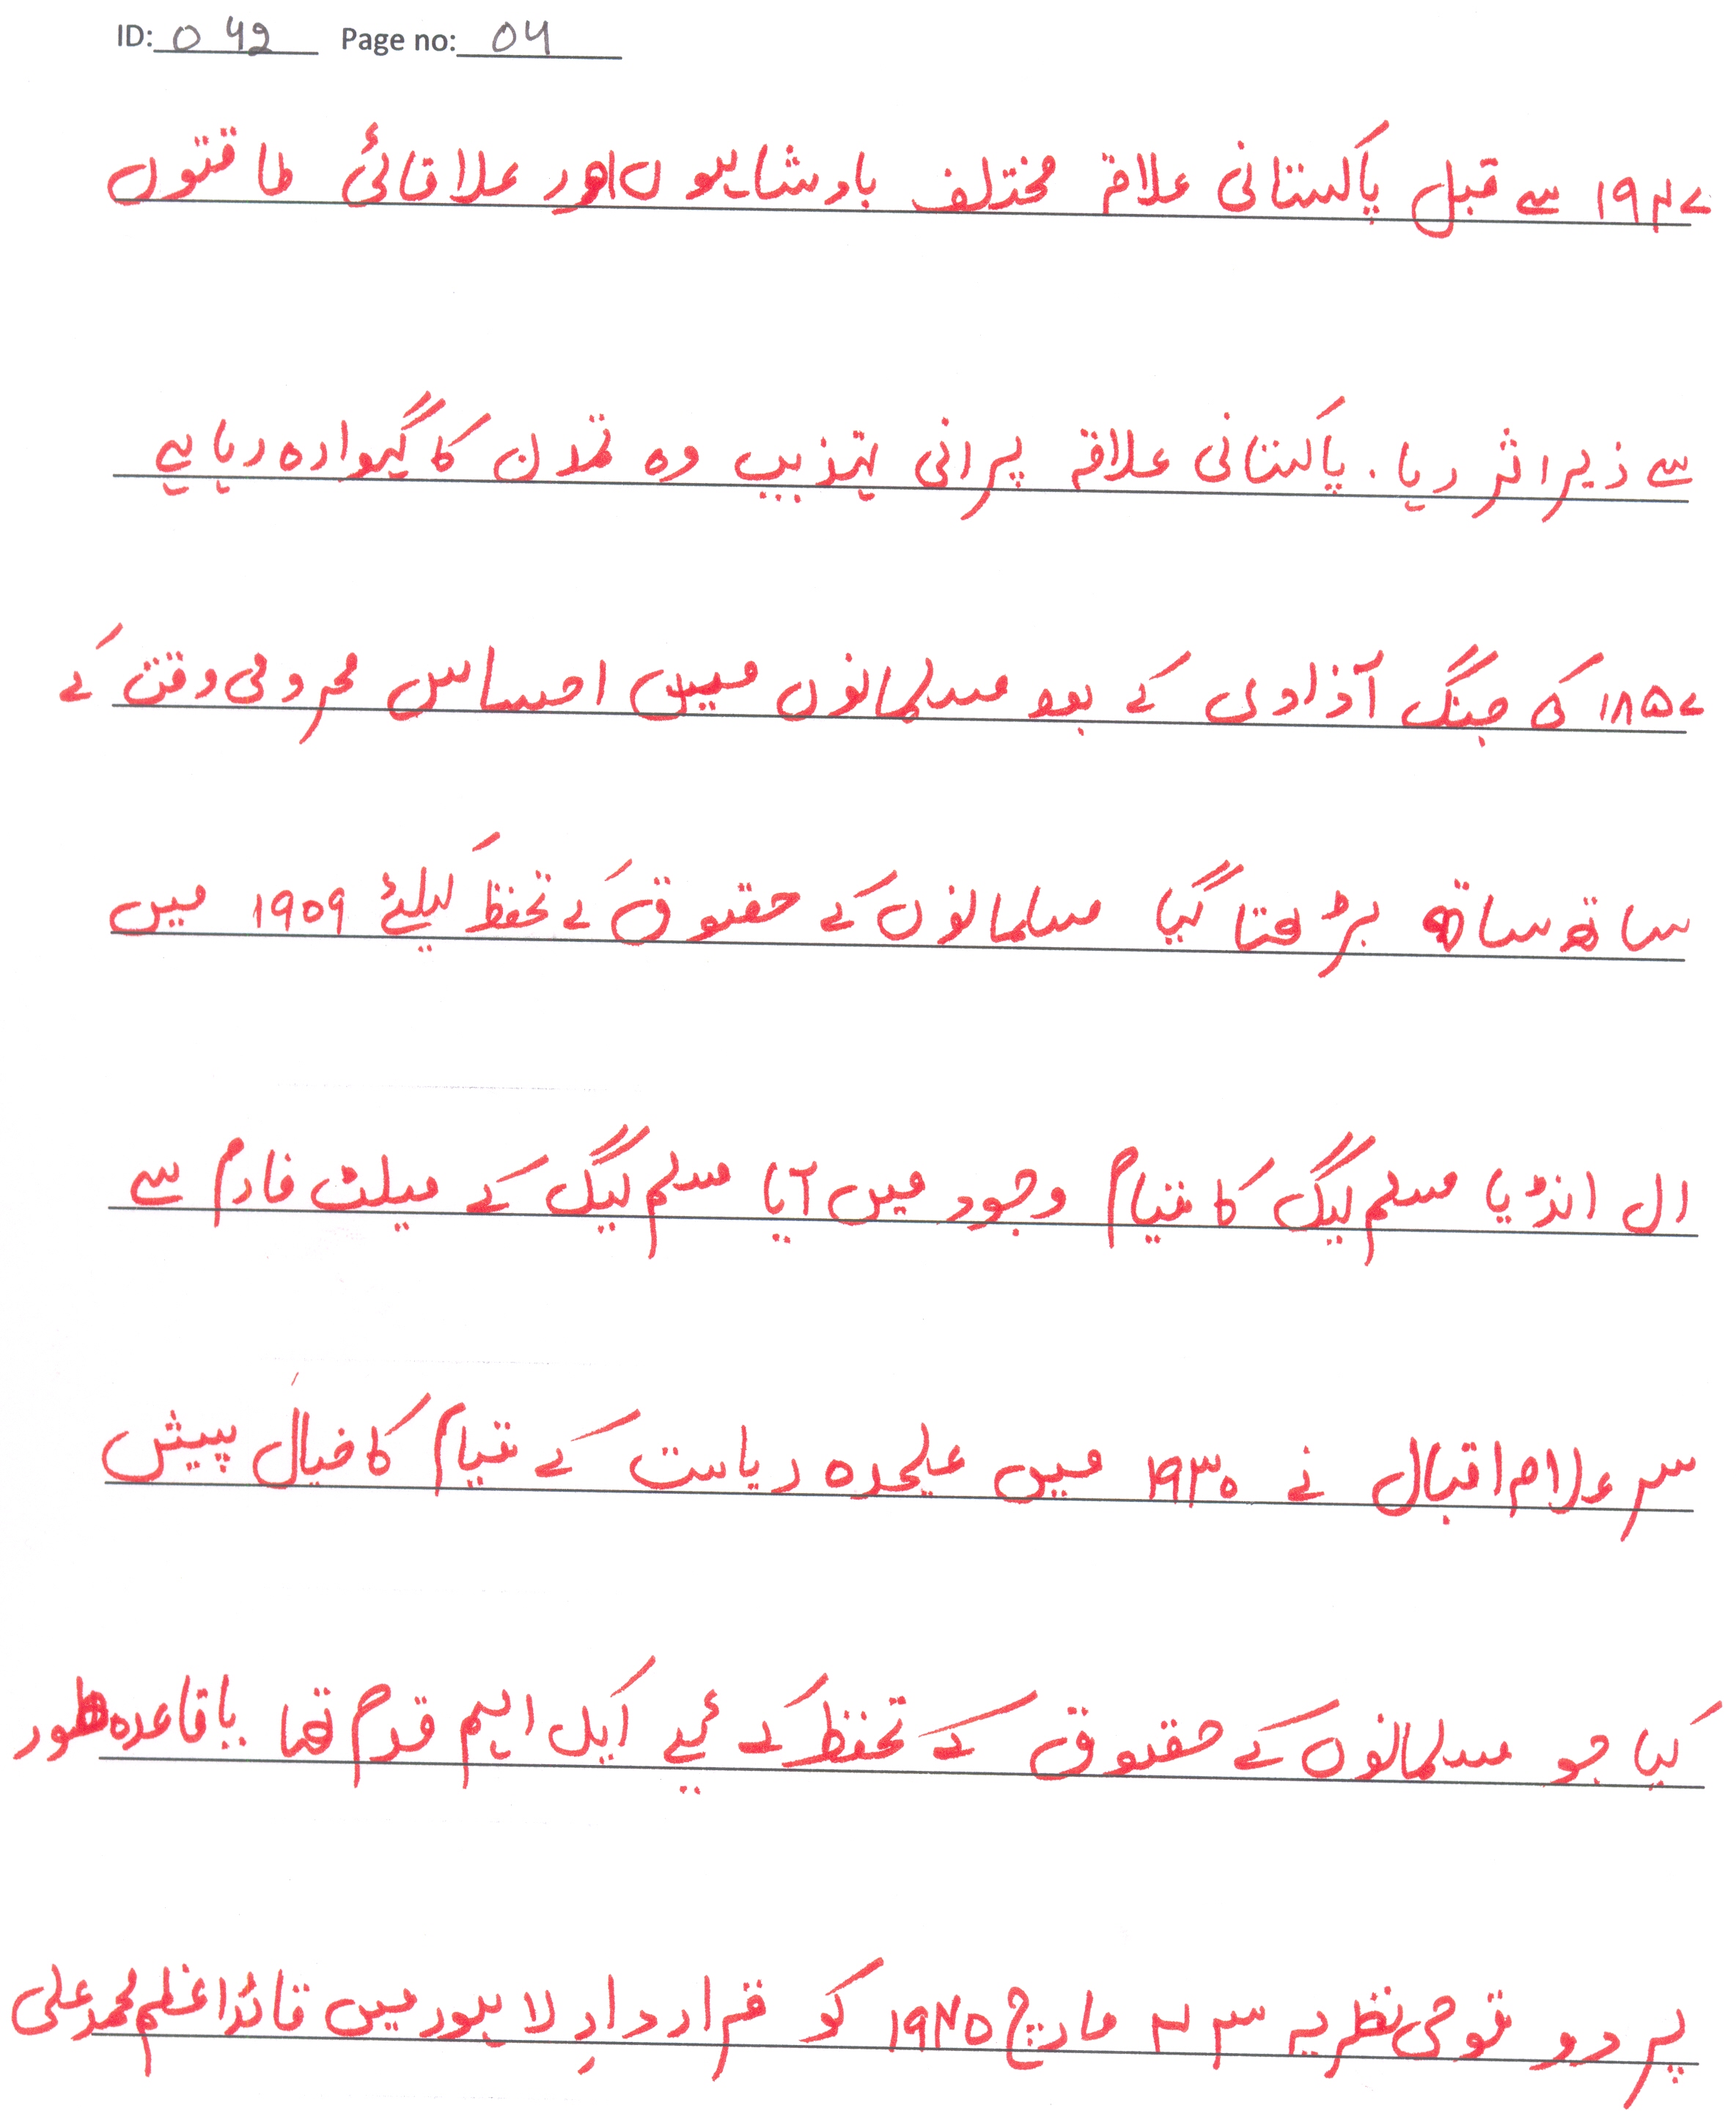 ID: 042 Page no: 04
۱۹۴۷ سے قبل پاکستانی علاقہ مختلف بادشاہوں اور علاقائی طاقتوں
سے ذیر اثر رہا. پاکستانی علاقہ پرانی تہذیب وہ تمدن کا گہوارہ رہا ہے
۱۸۵۷ کی جنگ آذادی کے بعد مسلمانوں میں احساس محرومی وقت کے
ساتھ ساتھ بڑھتا گیا مسلمانوں کے حقوق کے تحفظ کیلئے ۱۹۰۹ میں
ال انڈیا مسلم لیگ کا قیام وجود میں آیا مسلم لیگ کے پیلٹ فارم سے
سر علام اقبال نے ۱۹۳۰ میں علیحدہ ریاست کے قیام کا خیال پیش
کیا جو مسلمانوں کے حقوق کے تحفظ کے لیے ایک اہم قدم تھا باقاعدہ طور
پر دو قومی نظریہ ۲۳ مارچ ۱۹۴۰ کو قرار دادِ لاہور میں قائد اعظم محمد علی